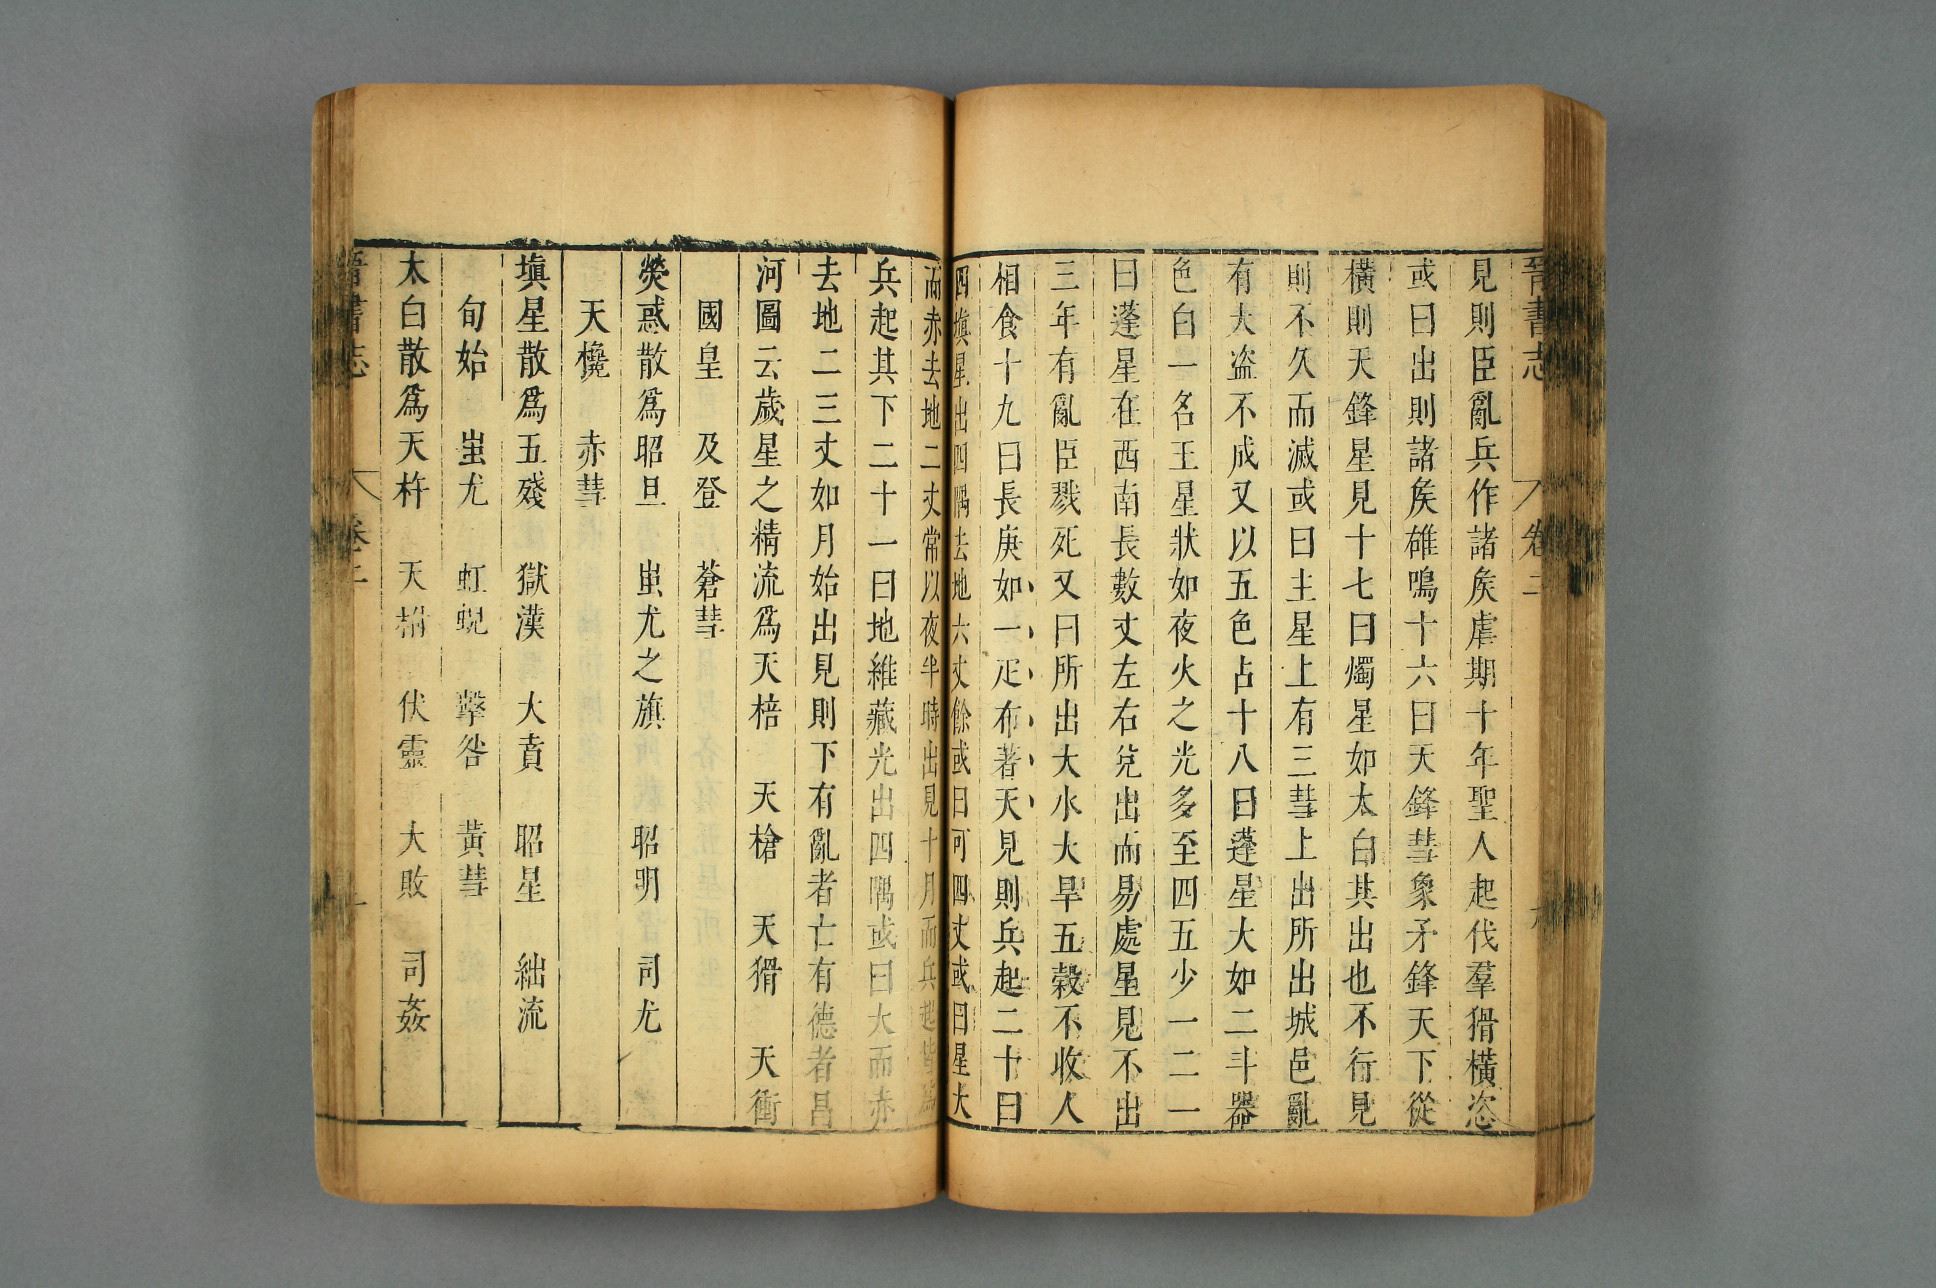 晉書志 卷二 九
見則臣亂兵作諸矦虐期十年聖人起伐羣猾橫恣
或曰出則諸矦雄鳴十六曰天鋒彗象矛鋒天下從
橫則天鋒星見十七曰燭星如太白其出也不行見
則不久而滅或曰主星上有三彗上出所出城邑亂
有大盗不成又以五色占十八曰蓬星大如二斗器
色白一名王星狀如夜火之光多至四五少一二一
曰蓬星在西南長數丈左右兌出而易處星見不出
三年有亂臣戮死又曰所出大水大旱五穀不收人
相食十九曰長庚如一疋布著天見則兵起二十曰
四塡星出四隅去地六丈餘或曰可四丈或曰星大
而赤去地二丈常以夜半時出見十月而兵起皆爲
兵起其下二十一曰地維藏光出四隅或曰大而赤
去地二三丈如月始出見則下有亂者亡有德者昌
河圖云歲星之精流爲天棓 天槍 天猾 天衝
國皇 及登 蒼彗
熒惑散爲昭旦 蚩尤之旗 昭明 司尤
天欃 赤彗
塡星散爲五殘 獄漢 大賁 昭星 絀流
旬始 蚩尤 虹蜺 擊咎 黃彗
太白散爲天杵 天柎 伏靈 大敗 司姦
晉書志 卷二